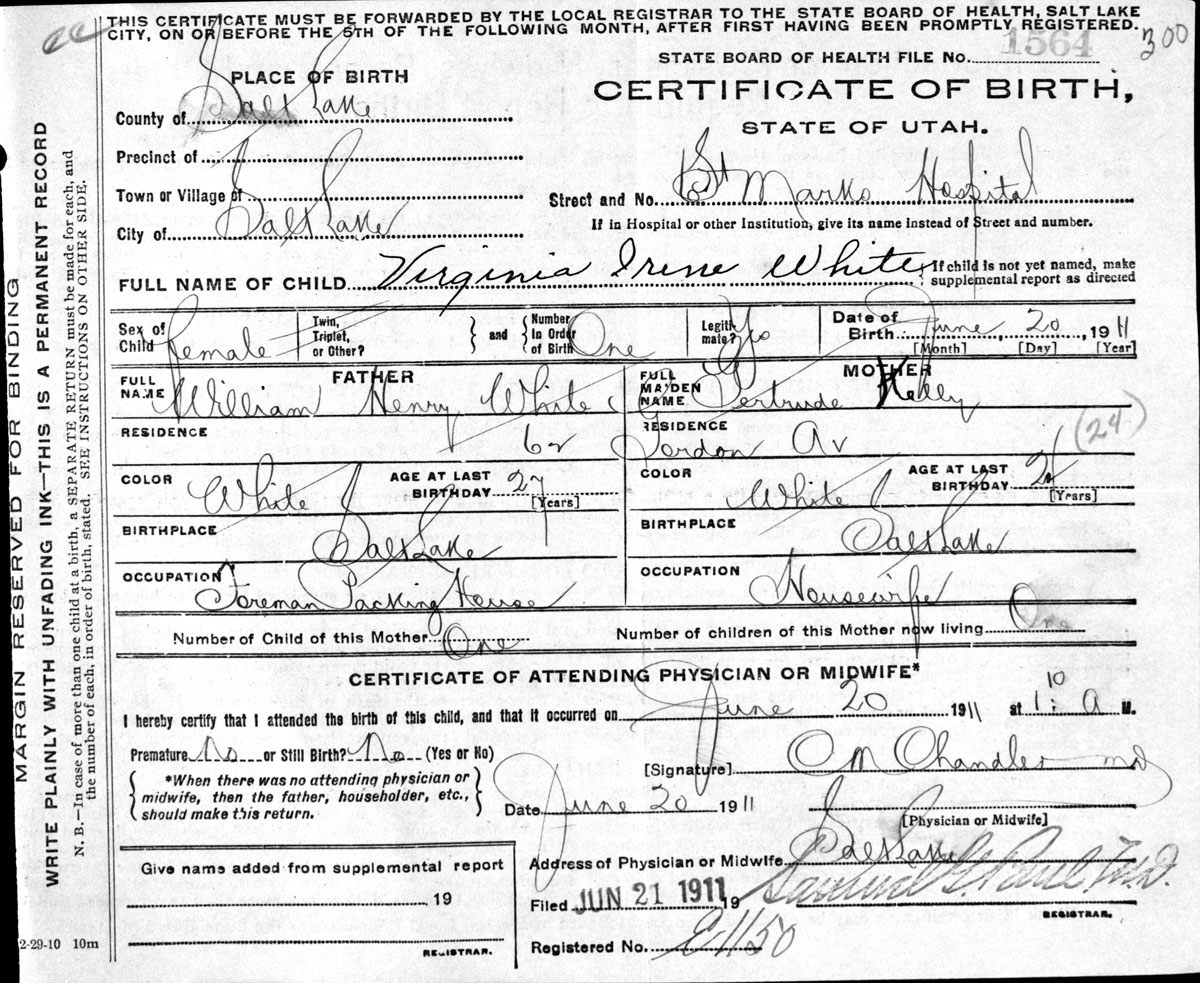 THIS CERTIFICATE MUST BE FORWARDED BY THE LOCAL REGISTRAR TO THE STATE BOARD OF HEALTH, SALT LAKE
CITY, ON OR BEFORE THE 5TH OF THE FOLLOWING MONTH, AFTER FIRST HAVING BEEN PROMPTLY REGISTERED.
300
STATE BOARD OF HEALTH FILE No. 1564
PLACE OF BIRTH
CERTIFICATE OF BIRTH,
STATE OF UTAH.
County of Salt Lake
Precinct of
Town or Village of
City of Salt Lake
Street and No. St Marks Hospital
If in Hospital or other Institution, give its name instead of Street and number.
FULL NAME OF CHILD Virginia Irene White
If child is not yet named, make
supplemental report as directed
Sex of Child Female
Twin, Triplet, or Other?
and
Number In Order of Birth One
Legitimate?
Date of Birth June 20, 1911
[Month] [Day] [Year]
FATHER
FULL NAME William Henry White
MOTHER
FULL MAIDEN NAME Gertrude Kelly
RESIDENCE
RESIDENCE
Jordon Av
(24)
COLOR White
AGE AT LAST BIRTHDAY 27
[Years]
COLOR White
AGE AT LAST BIRTHDAY 24
[Years]
BIRTHPLACE Salt Lake
BIRTHPLACE Salt Lake
OCCUPATION Foreman Packing House
OCCUPATION Housewife
Number of Child of this Mother One
Number of children of this Mother now living One
CERTIFICATE OF ATTENDING PHYSICIAN OR MIDWIFE*
I hereby certify that I attended the birth of this child, and that it occurred on June 20 1911 at 1:10 A M.
Premature No or Still Birth? No (Yes or No)
*When there was no attending physician or
midwife, then the father, householder, etc.,
should make this return.
[Signature] C M Chandler md
[Physician or Midwife]
Date June 20 1911
Address of Physician or Midwife Salt Lake
Give name added from supplemental report
19
REGISTRAR.
Filed JUN 21 1911 19
Samuel G Paul M.D.
REGISTRAR.
Registered No. E1150
2-29-10 10m
MARGIN RESERVED FOR BINDING
WRITE PLAINLY WITH UNFADING INK—THIS IS A PERMANENT RECORD
N. B.—In case of more than one child at a birth, a SEPARATE RETURN must be made for each, and
the number of each, in order of birth, stated. SEE INSTRUCTIONS ON OTHER SIDE.